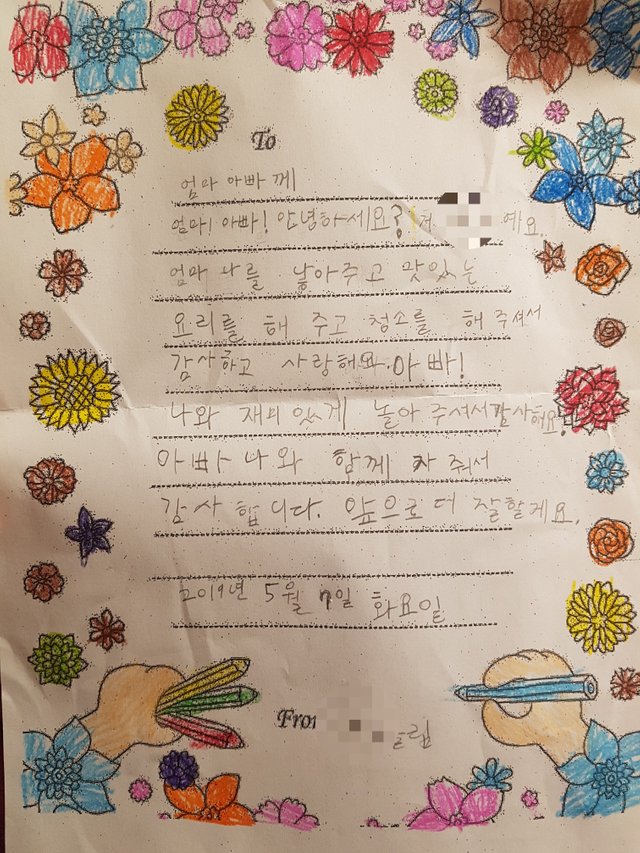 To
엄마 아빠 께
엄마! 아빠! 안녕하세요? 저 예요.
엄마 나를 낳아주고 맛있는
요리를 해 주고 청소를 해 주셔서
감사하고 사랑해요. 아빠!
나와 재미있게 놀아 주셔서감사해요!
아빠 나와 함께 자 줘서
감사 합니다. 앞으로 더 잘할게요.
2019년 5월 7일 화요일
From 올림